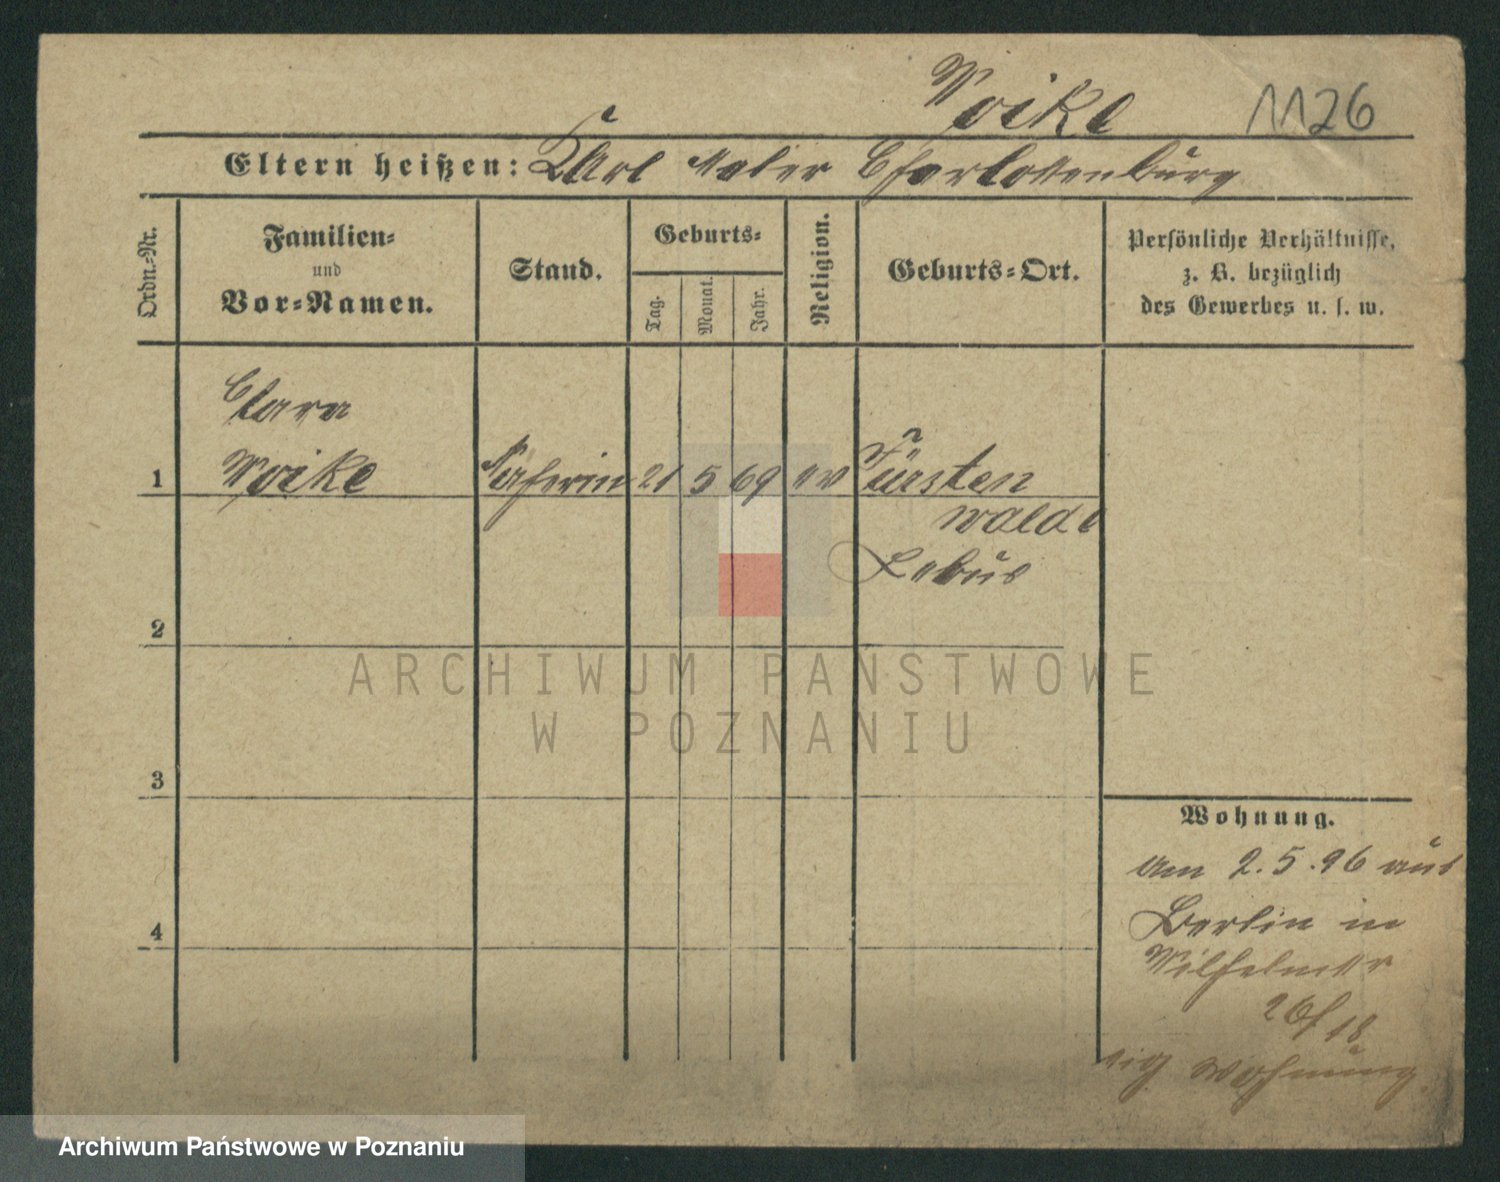 Woike 1126
Eltern heißen: Karl Maler Charlottenburg
Ordn.-Nr.
Familien-
und
Vor-Namen.
Stand.
Geburts-
Tag.
Monat.
Jahr.
Religion.
Geburts-Ort.
Persönliche Verhältnisse,
z. B. bezüglich
des Gewerbes u. s. w.
Clara
1 Woike Näherin 21 5 69 ev Fürsten
walde
Lebus
2
3
4
Wohnung.
am 2.5.96 aus
Berlin in
Wilhelmstr
26/18
eig Wohnung.
ARCHIWUM PAŃSTWOWE
W POZNANIU
Archiwum Państwowe w Poznaniu